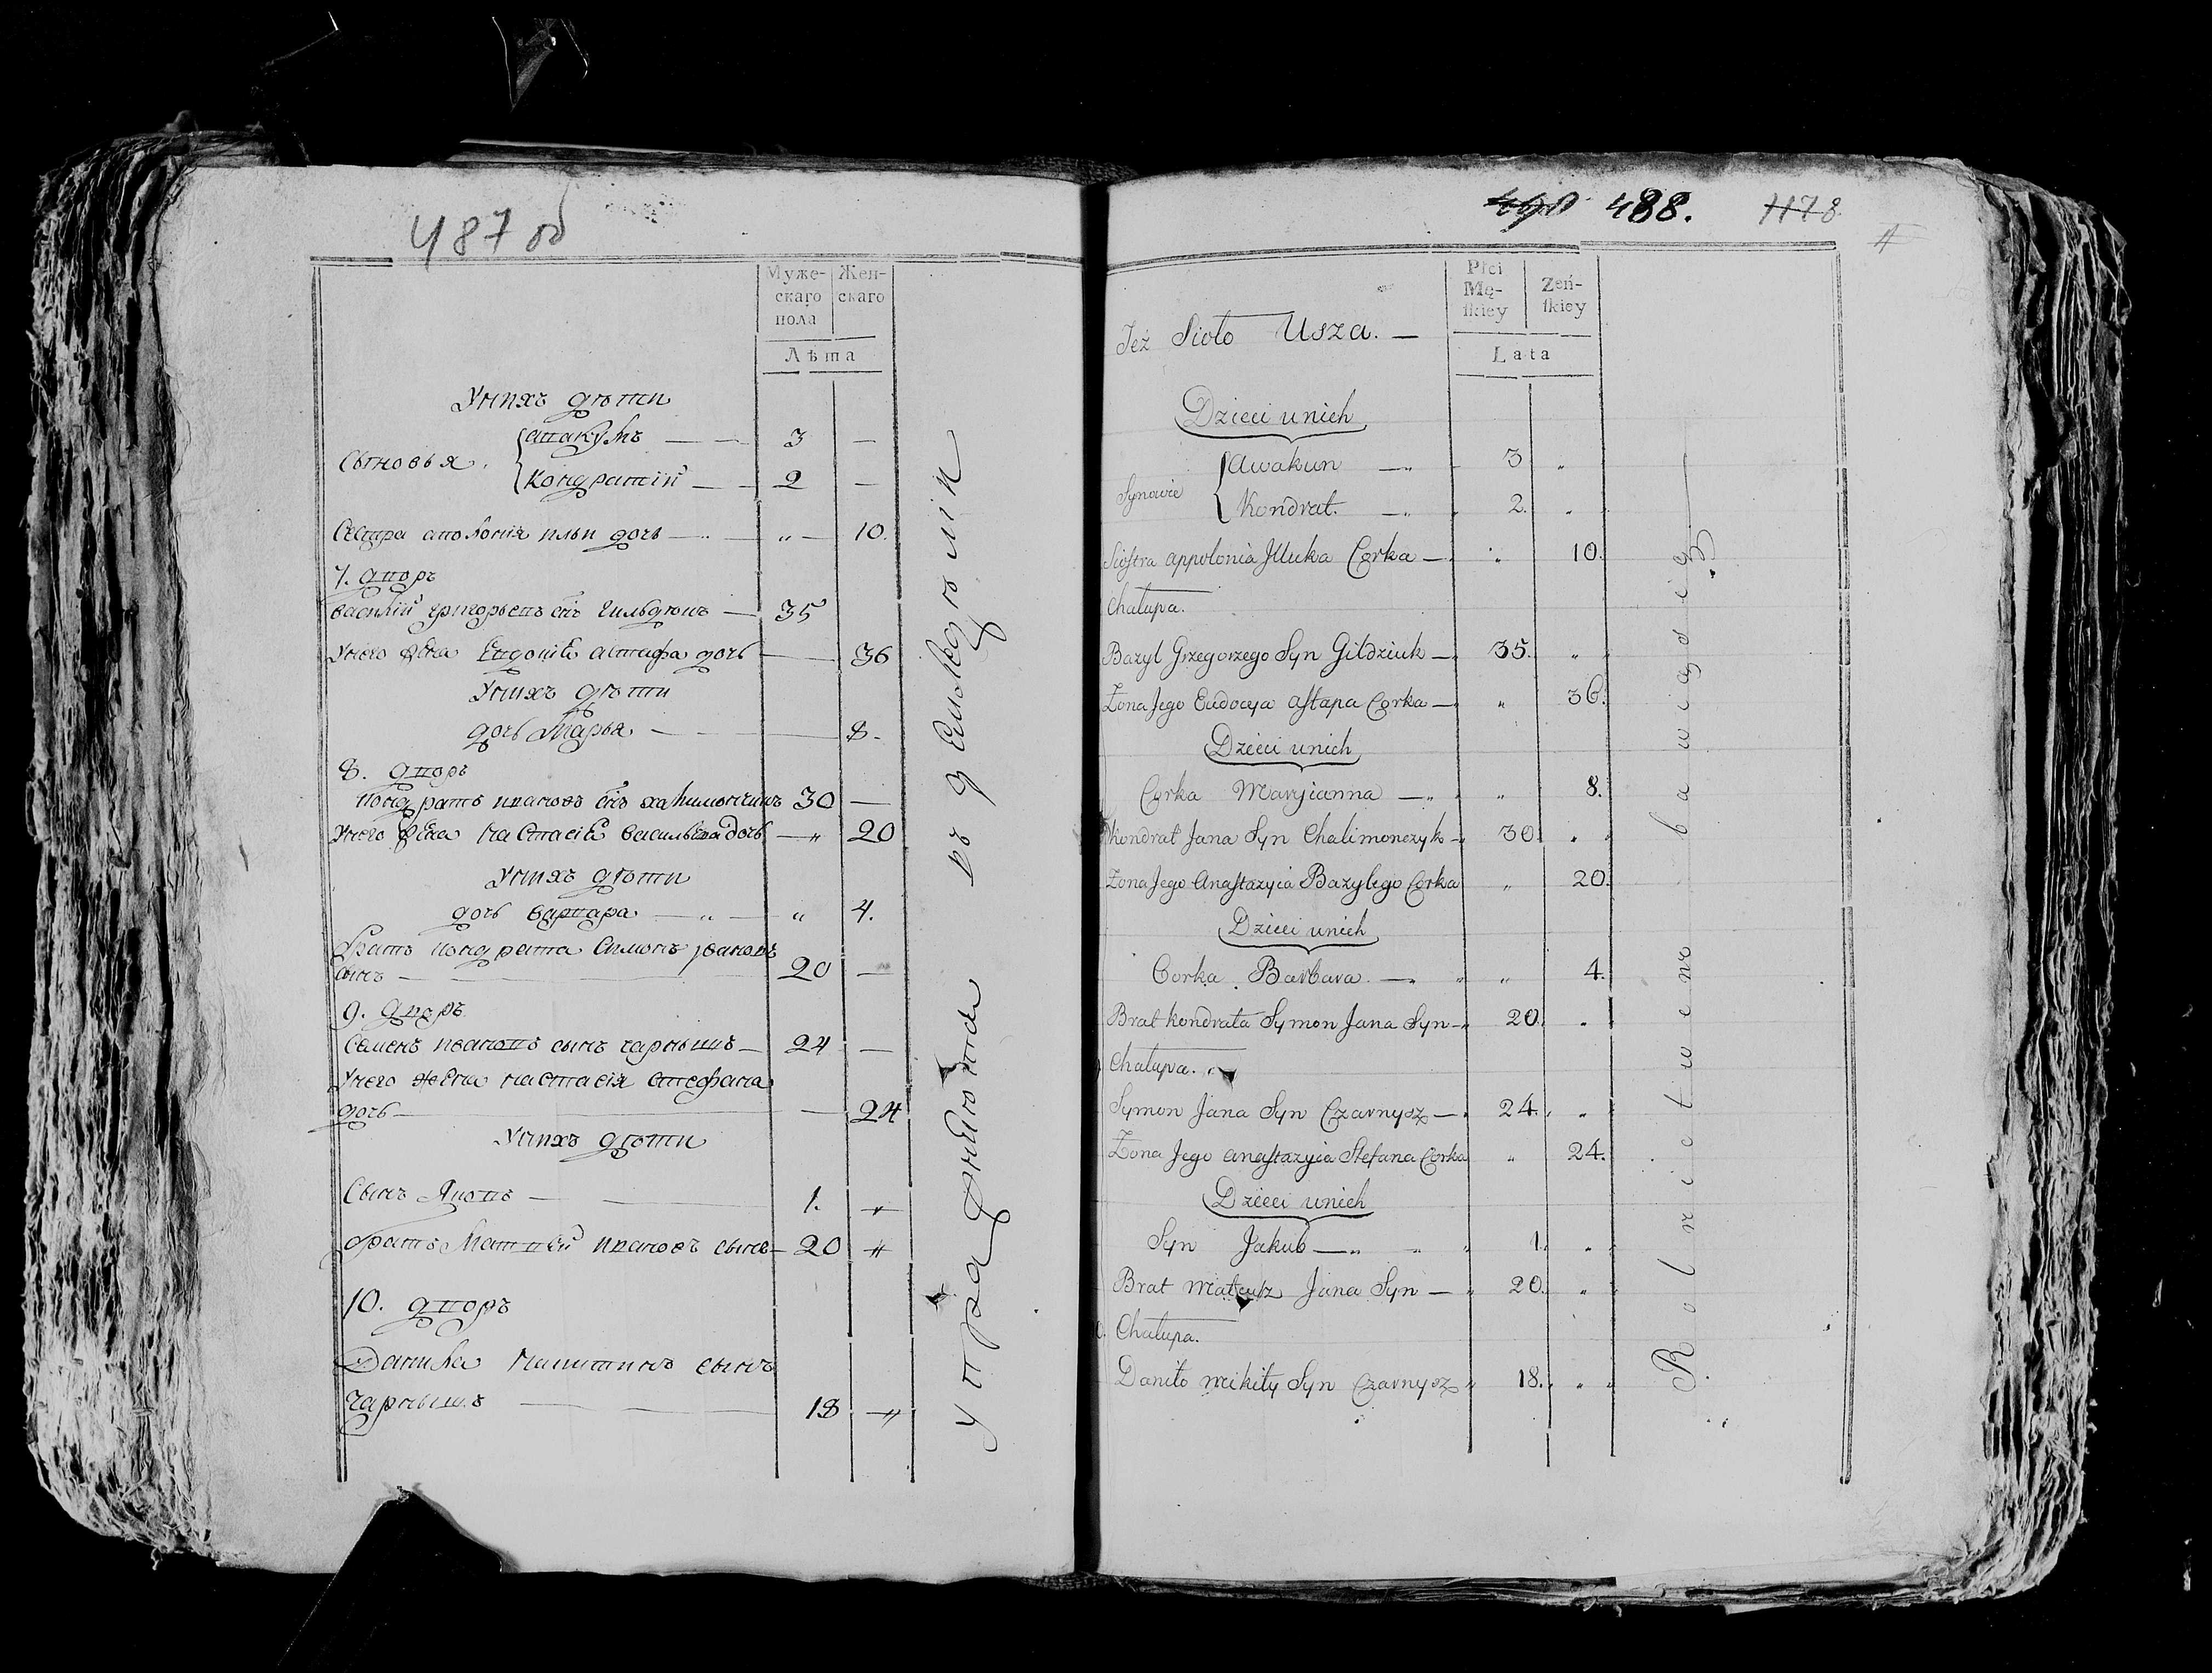 487 об
Муже-
скаго
пола
Жен-
скаго
Лѣта
Унихъ дѣти
Сыновья
авакумъ 3 —
Кондратій 2 —
Сестра аполонія ильи дочь — „ — 10.
7. дворъ
василій григорьевъ снъ гильдюкъ — 35
Унего жена Евдокія астафа дочь — 36
Унихъ дѣти
дочь Марья — 8.
8. дворъ
Кондратъ ивановъ снъ халимончикъ 30 —
Унего жена настасія васильева дочь — „ 20
Унихъ дѣти
дочь варвара — „ — „ 4.
братъ кондрата Симонъ ивановъ
сынъ — 20 —
9. дворъ
Семенъ ивановъ сынъ чарнышъ — 24 —
Унего жена настасія стефана
дочь — 24
Унихъ дѣти
Сынъ Яковъ — 1. „
братъ Матвей ивановъ сынъ — 20 „
10. дворъ
Данила никитинъ сынъ
чарнышъ — 18 — „
упражняются въ земледѣліи
490 488. 1178
Płci
Mę-
ſkiey
Żeń-
ſkiey
Lata
Też Sioło Usza. —
Dzieci unich
Synowie
Awakun — „ 3 „
Kondrat. — „ 2. „
Sioſtra appolonia Jlluka Corka — „ 10.
Chałupa.
Bazyl Grzegorzego Syn Gildziuk — 35. „
Żona Jego Eudocya aſtapa Corka — „ 36.
Dzieci unich
Corka Maryianna — „ „ 8.
Kondrat Jana Syn Chalimonczyk — 30. „
Żona Jego Anaſtazyia Bazylego Corka „ 20.
Dzieci unich
Corka Barbara. — „ „ 4.
Brat kondrata Symon Jana Syn — 20. „
Chałupa. „
Symon Jana Syn Czarnysz — 24. „
Żona Jego anaſtazyia Stefana Corka „ 24.
Dzieci unich
Syn Jakub — „ „ 1. „
Brat Mateusz Jana Syn — 20. „
10. Chałupa.
Daniło mikity Syn Czarnysz „ 18. „
Rolnictwem bawią się